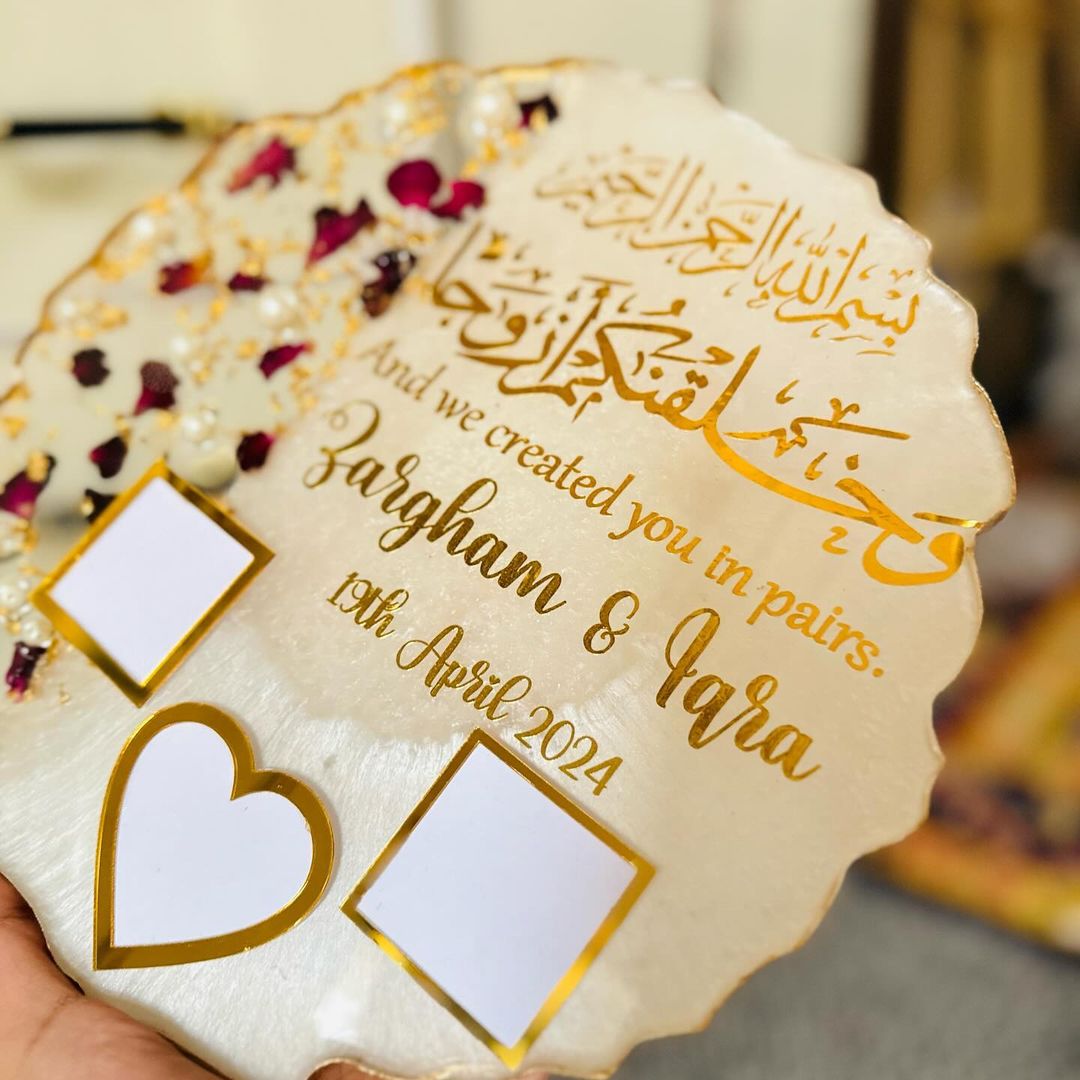 بِسْمِ اللهِ الرَّحْمٰنِ الرَّحِيْمِ
وَخَلَقْنٰكُمْ أَزْوَاجًا
And we created you in pairs.
Zargham & Iqra
19th April 2024